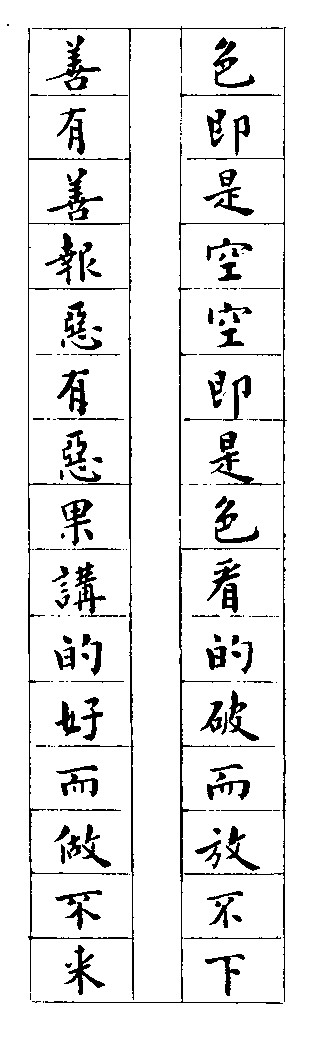 色即是空空即是色看的破而放不下
善有善報惡有惡果講的好而做不来